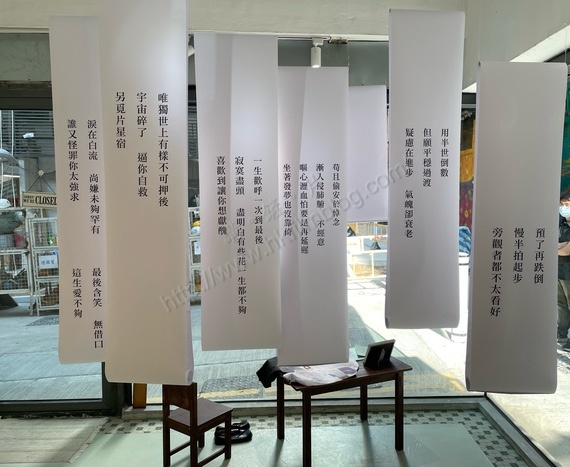 用半世倒數
但願平穩過渡
疑慮在進步 氣魄卻衰老
預了再跌倒
慢半拍起步
旁觀者都不太看好
苟且偷安於悼念
漸入侵肺腑 不經意
嘔心瀝血怕要是再延遲
坐著發夢也沒靠倚
一生歡呼一次到最後
寂寞盡頭 盡明白有些花一生都不夠
喜歡到讓你想獻醜
唯獨世上有樣不可押後
宇宙碎了 逼你自救
另覓片星宿
淚在白流 尚嫌未夠罕有
誰又怪罪你太強求
最後含笑 無借口
這生愛不夠
CLOSED